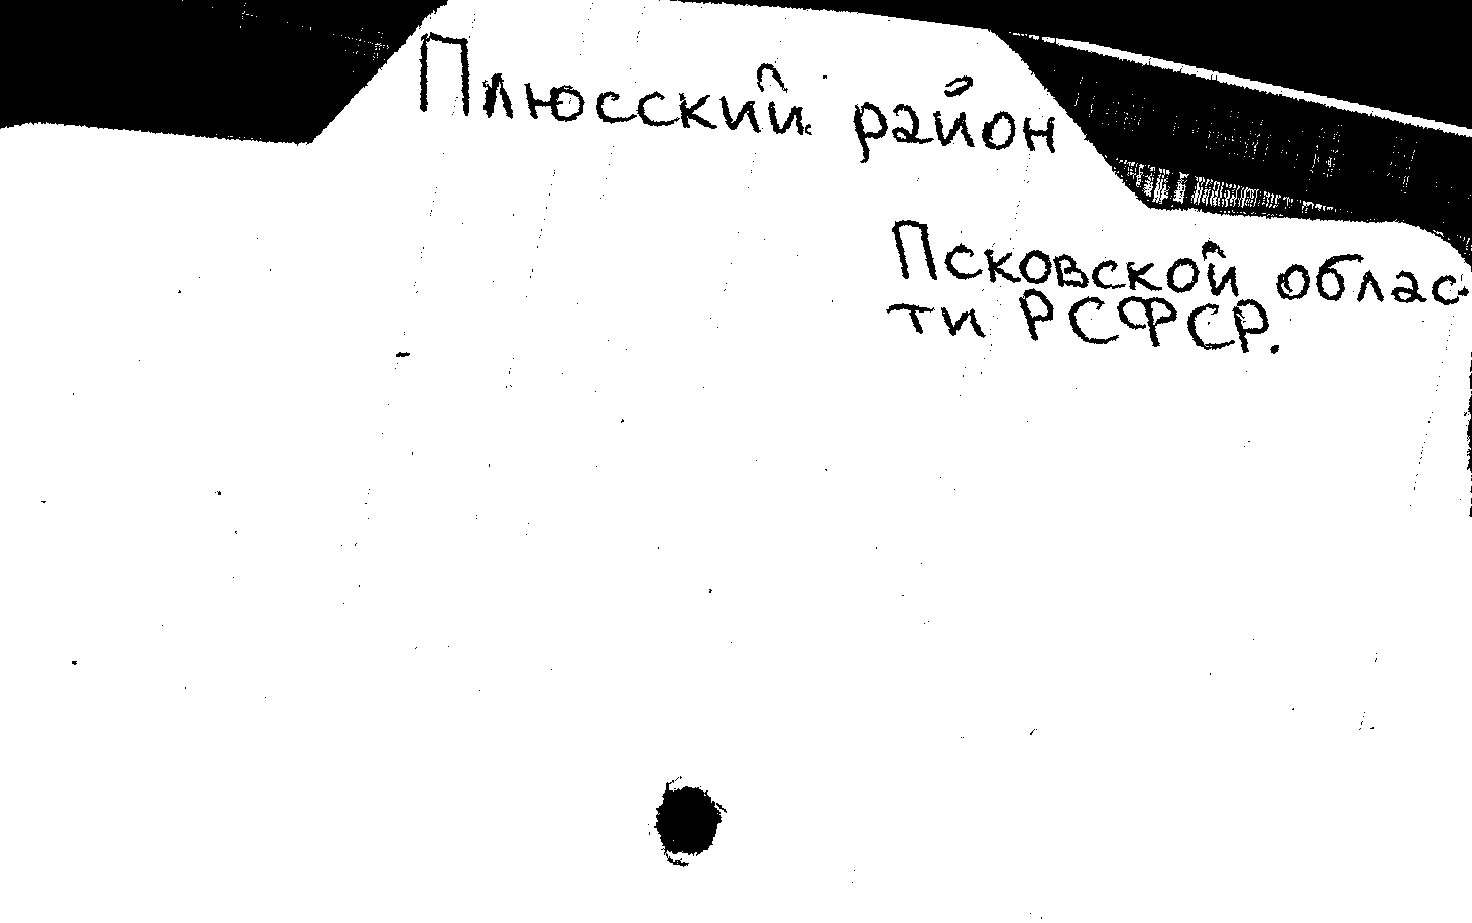 Плюсский район
Псковской облас-
ти РСФСР.